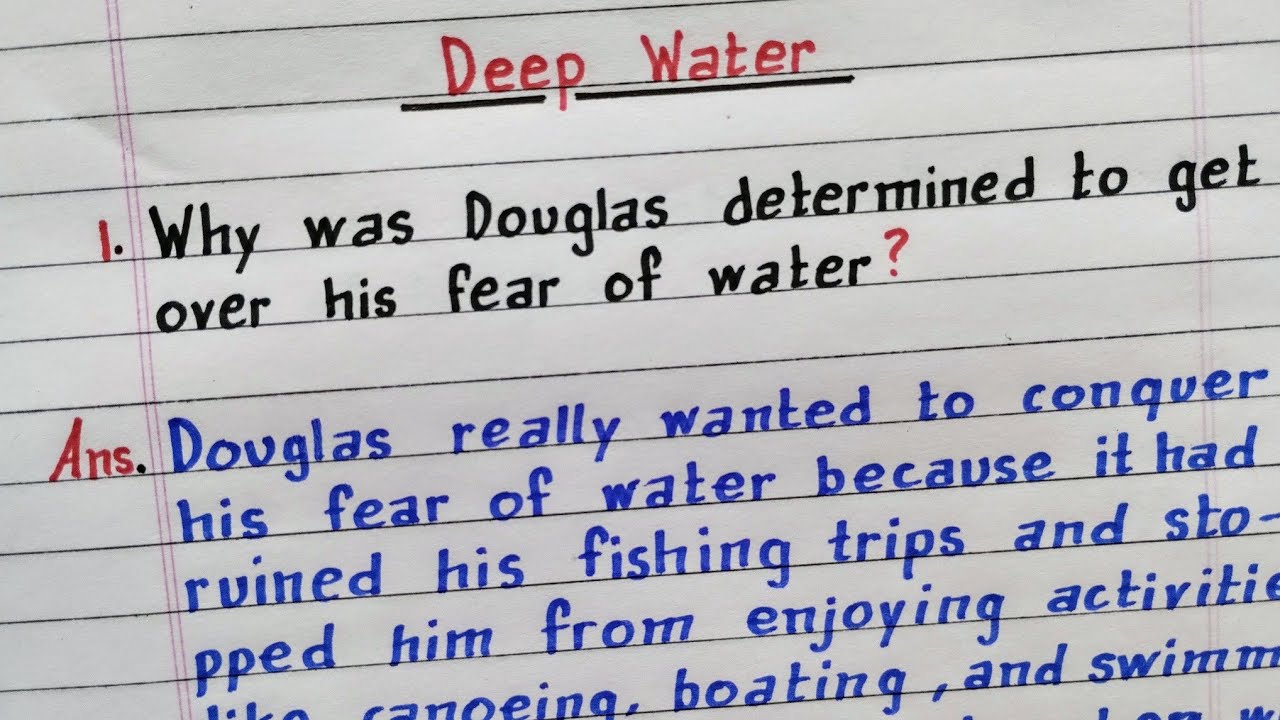 Deep Water
1. Why was Douglas determined to get
over his fear of water?
Ans. Douglas really wanted to conquer
his fear of water because it had
ruined his fishing trips and sto-
pped him from enjoying activitie
like canoeing, boating, and swimm